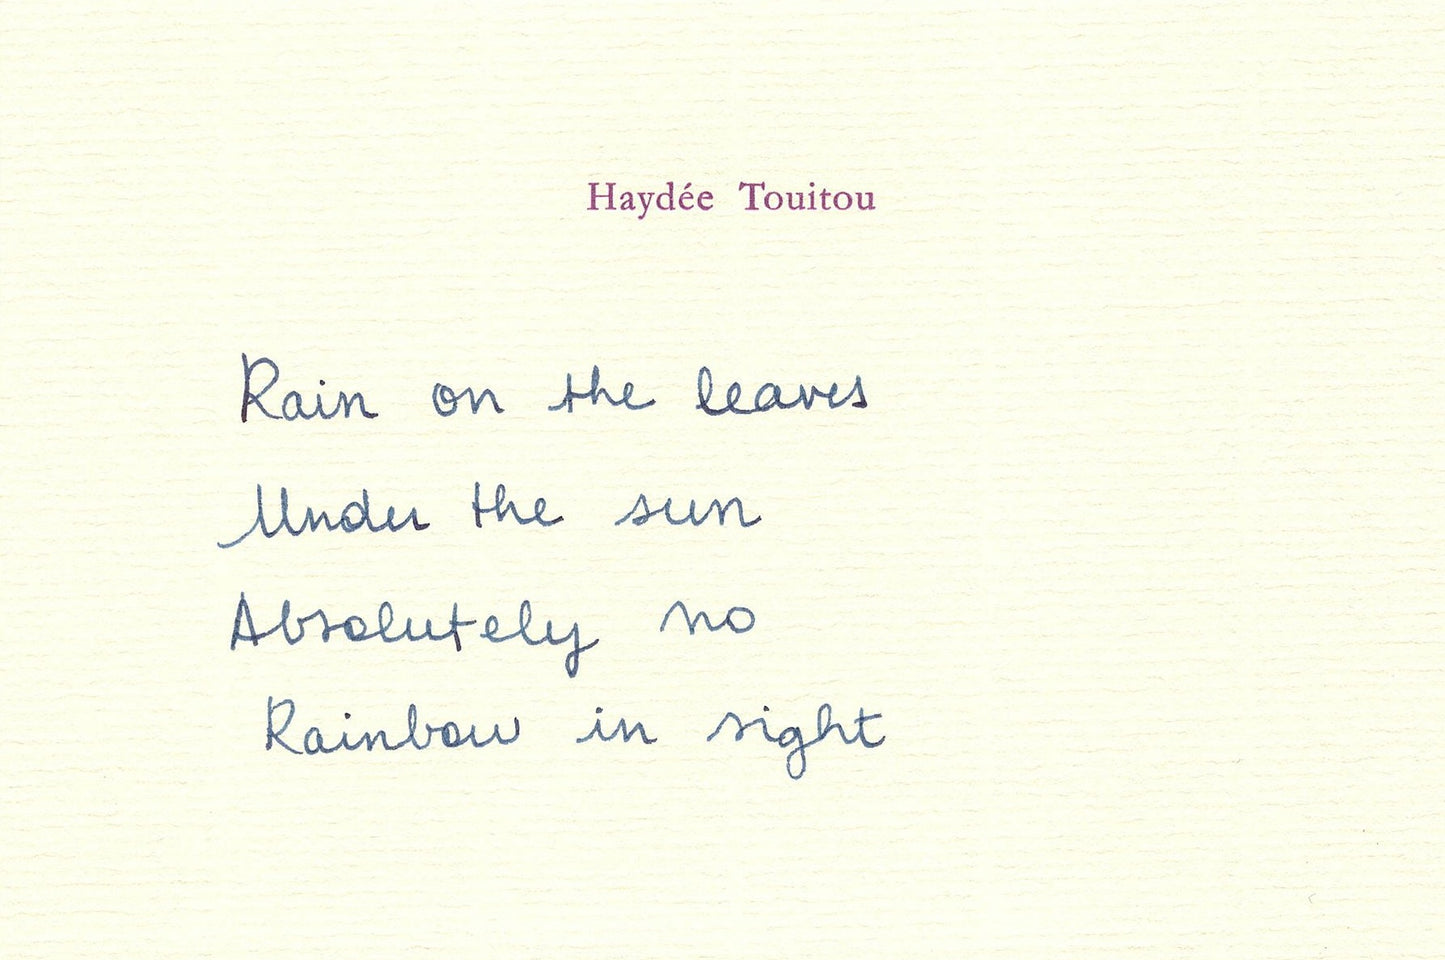 Haydée Touitou
Rain on the leaves
Under the sun
Absolutely no
Rainbow in sight